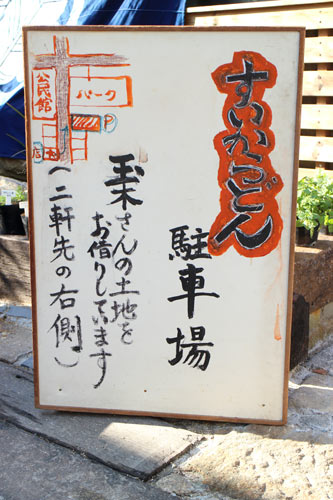 すいかうどん
駐車場
玉木さんの土地を
お借りしています
(二軒先の右側)
公民館
パーク
P
店